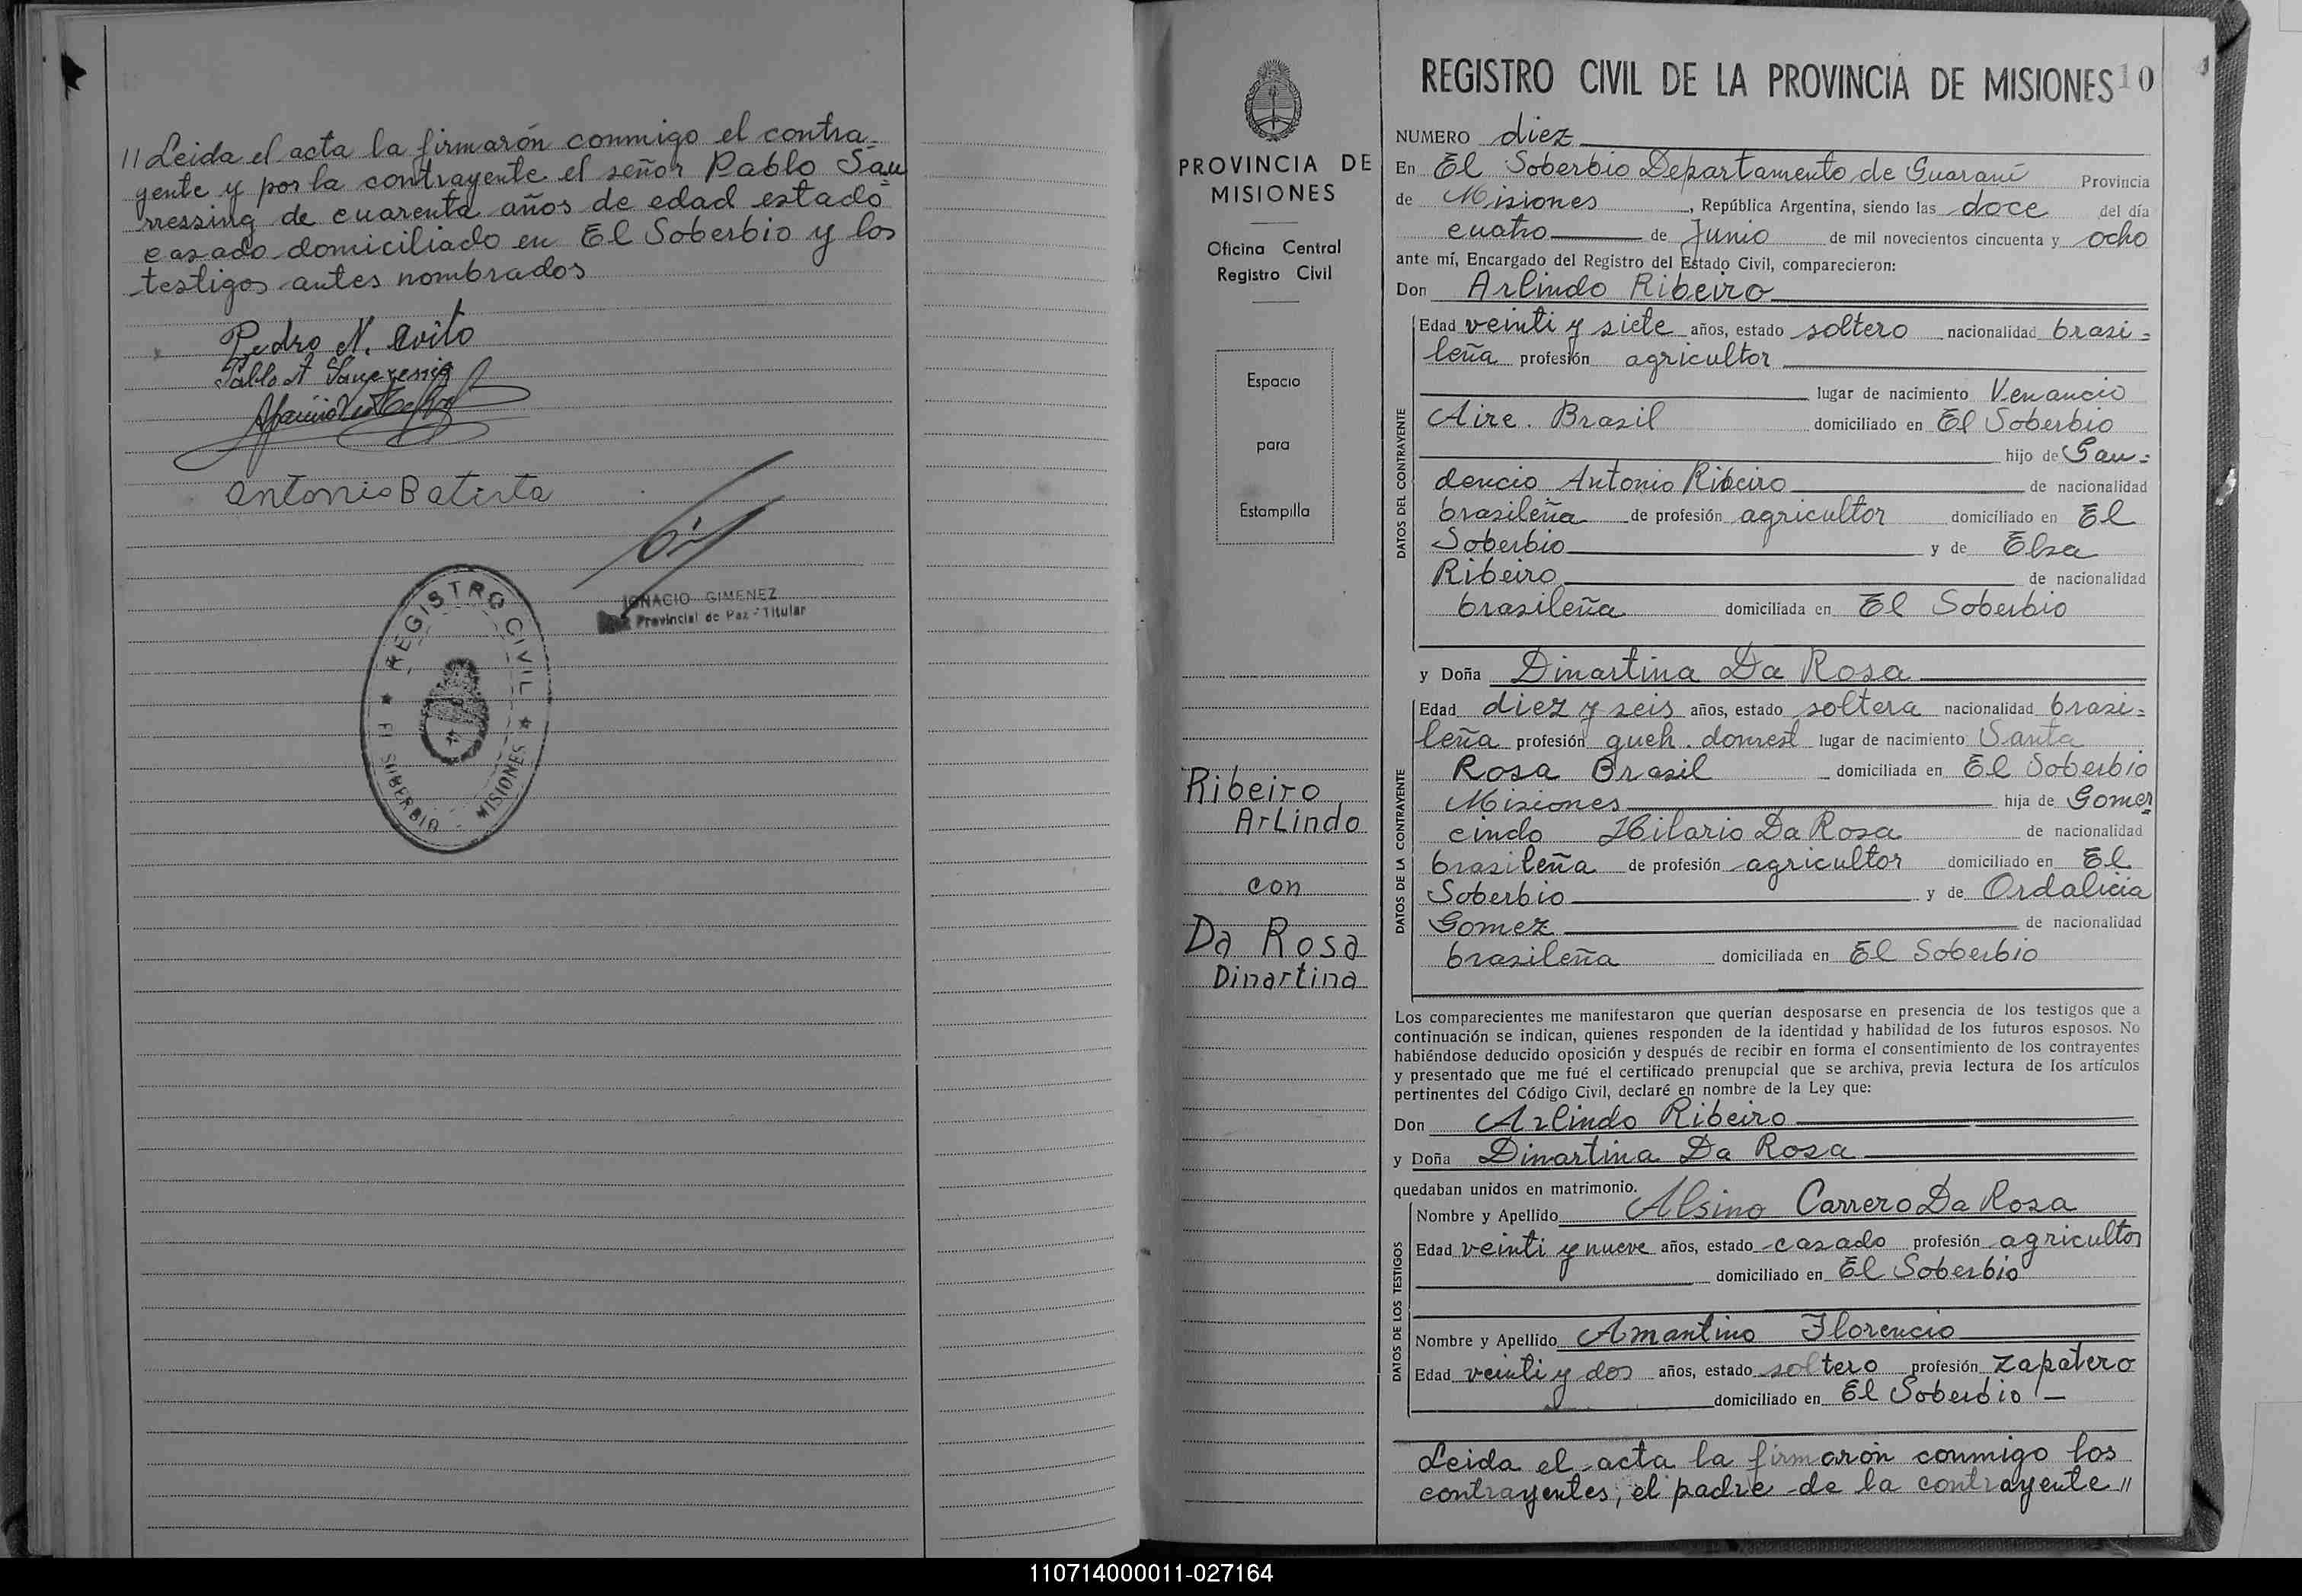 // Leida el acta la firmarón conmigo el contra-
yente y por la contrayente el señor Pablo Sau
rressing de cuarenta años de edad estado
casado domiciliado en El Soberbio y los
testigos antes nombrados
Pedro N. Evito
Pablo A
Antonio Batista
IGNACIO GIMENEZ
Provincial de Paz - Titular
REGISTRO CIVIL
EL SOBERBIO - MISIONES
PROVINCIA DE
MISIONES
Oficina Central
Registro Civil
Espacio
para
Estampilla
Ribeiro
Arlindo
con
Da Rosa
Dinartina
REGISTRO CIVIL DE LA PROVINCIA DE MISIONES 10
NUMERO diez
En El Soberbio Departamento de Guaraní Provincia
de Misiones, República Argentina, siendo las doce del día
cuatro de Junio de mil novecientos cincuenta y ocho
ante mí, Encargado del Registro del Estado Civil, comparecieron:
Don Arlindo Ribeiro
DATOS DEL CONTRAYENTE
Edad veinti y siete años, estado soltero nacionalidad brasi=
leña profesión agricultor
lugar de nacimiento Venancio
Aire. Brasil domiciliado en El Soberbio
hijo de Gau=
dencio Antonio Ribeiro de nacionalidad
brasileña de profesión agricultor domiciliado en El
Soberbio y de Elsa
Ribeiro de nacionalidad
brasileña domiciliada en El Soberbio
y Doña Dinartina Da Rosa
DATOS DE LA CONTRAYENTE
Edad diez y seis años, estado soltera nacionalidad brasi=
leña profesión queh. domest lugar de nacimiento Santa
Rosa Brasil domiciliada en El Soberbio
Misiones hija de Gomer=
cindo Hilario Da Rosa de nacionalidad
brasileña de profesión agricultor domiciliado en El
Soberbio y de Ordalicia
Gomez de nacionalidad
brasileña domiciliada en El Soberbio
Los comparecientes me manifestaron que querían desposarse en presencia de los testigos que a
continuación se indican, quienes responden de la identidad y habilidad de los futuros esposos. No
habiéndose deducido oposición y después de recibir en forma el consentimiento de los contrayentes
y presentado que me fué el certificado prenupcial que se archiva, previa lectura de los artículos
pertinentes del Código Civil, declaré en nombre de la Ley que:
Don Arlindo Ribeiro
y Doña Dinartina Da Rosa
quedaban unidos en matrimonio.
DATOS DE LOS TESTIGOS
Nombre y Apellido Alsino Carrero Da Rosa
Edad veinti y nueve años, estado casado profesión agricultor
domiciliado en El Soberbio
Nombre y Apellido Amantino Florencio
Edad veinti y dos años, estado soltero profesión zapatero
domiciliado en El Soberbio -
Leida el acta la firmarón conmigo los
contrayentes, el padre de la contrayente //
110714000011-027164